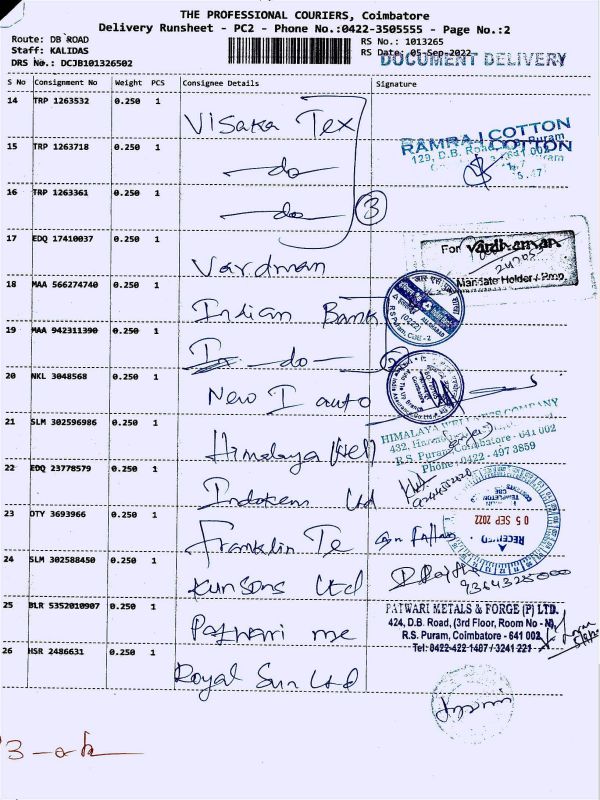 THE PROFESSIONAL COURIERS, Coimbatore
Delivery Runsheet - PC2 - Phone No.:0422-3505555 - Page No.:2
Route: DB ROAD
Staff: KALIDAS
DRS No.: DCJB101326502
RS No.: 1013265
RS Date: 05-Sep-2022
DOCUMENT DELIVERY
S No Consignment No Weight PCS Consignee Details Signature
14 TRP 1263532 0.250 1 Visaka Tex
RAMRAJ COTTON
129, D.B. Road,
15 TRP 1263718 0.250 1 -do-
16 TRP 1263361 0.250 1 -do-
3
17 EDQ 17410037 0.250 1 Vardman
For Vardhaman
Mandate Holder / Prop.
18 MAA 566274740 0.250 1 Indian Bank
(0222)
R.S Puram, CBE - 2
19 MAA 942311390 0.250 1 -do-
20 NKL 3048568 0.250 1 New I auto
21 SLM 302596986 0.250 1 Himalaya (Wel)
HIMALAYA WELLNESS COMPANY
R.S. Puram, Coimbatore - 641 002
Phone: 0422 - 497 3859
22 EDQ 23778579 0.250 1 Indokem Ltd
23 OTY 3693966 0.250 1 Franklin Te
RECEIVED
05 SEP 2022
TEMPLETON
CBE
24 SLM 302588450 0.250 1 Kunsons Ltd
25 BLR 5352010907 0.250 1 Patwari me
PATWARI METALS & FORGE (P) LTD.
424, D.B. Road, (3rd Floor, Room No - N)
R.S. Puram, Coimbatore - 641 002
Tel: 0422-422 1487 / 3241 221
26 HSR 2486631 0.250 1 Royal Sun Ltd